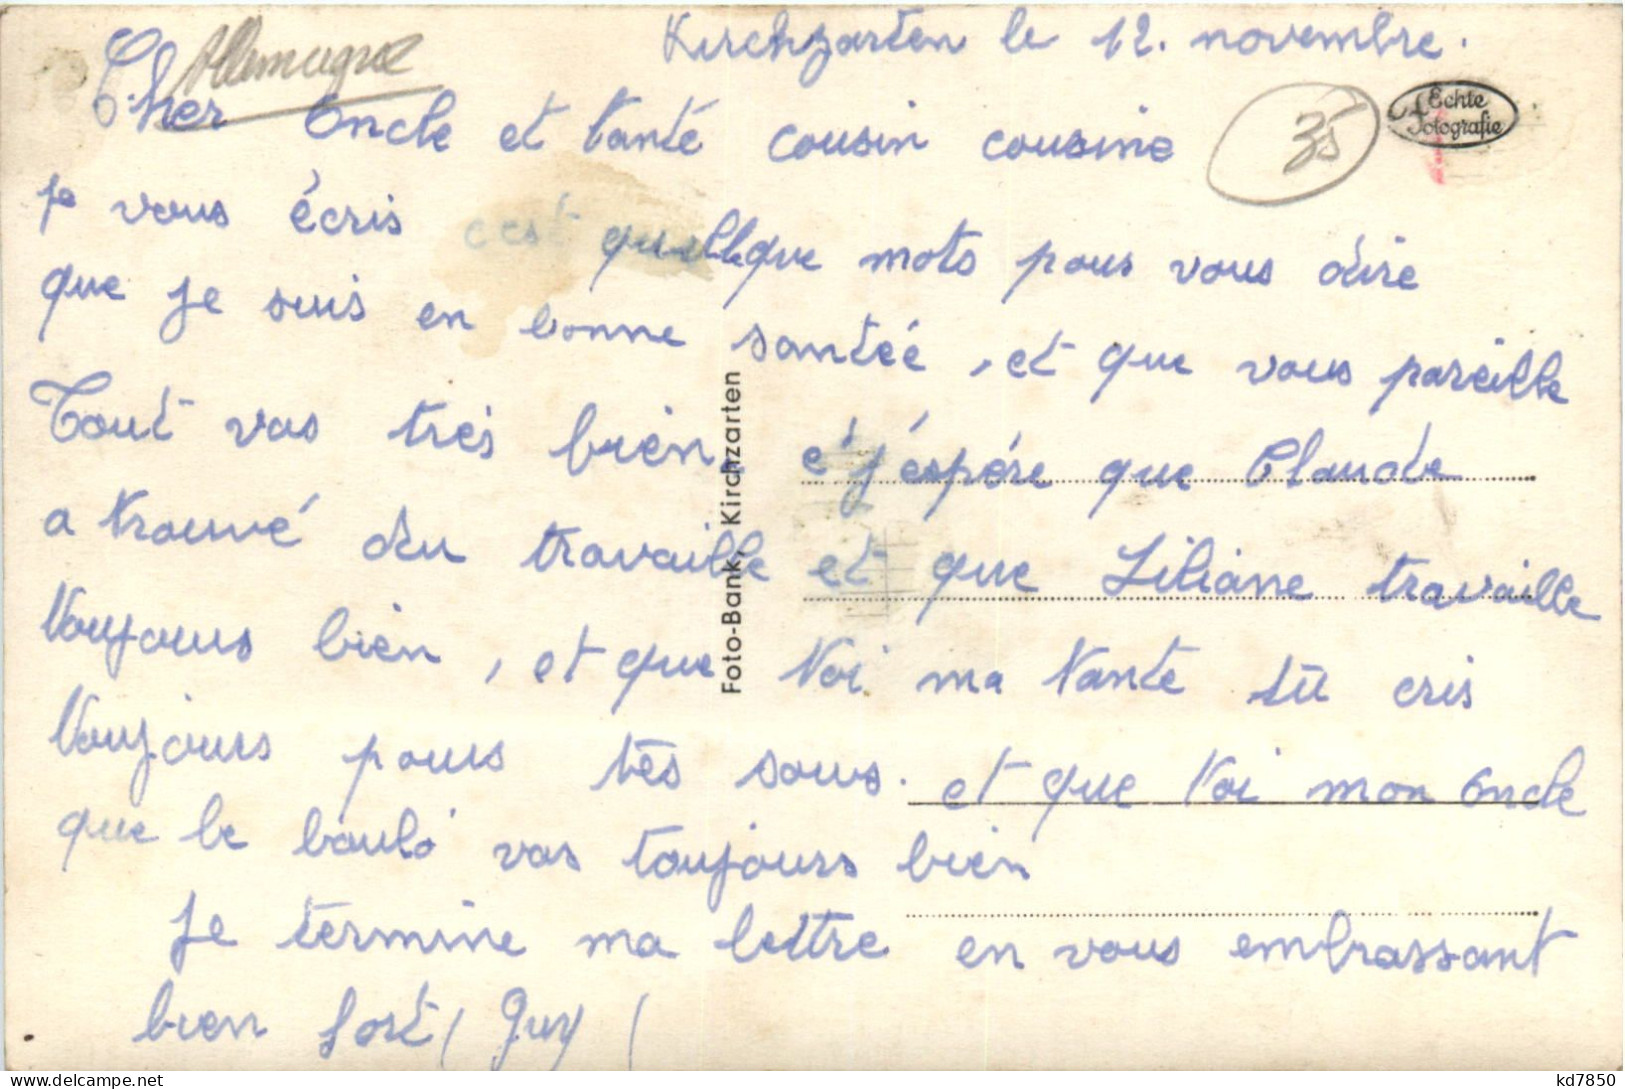 Allemagne
Kirchzarten le 12. novembre.
Cher Oncle et tanté cousin cousine
35
Echte Fotografie
je vous écris cest quellque mots pour vous dire
que je suis en bonne santéé, et que vous pareille
Tout vas trés bien, é j'éspére que Claude
a trouvé du travaille et que Liliane travaille
toujours bien, et que toi ma tante tu cris
toujours pour tes sous. et que toi mon oncle
que le bouló vas toujours bien
Je termine ma lettre en vous embrassant
bien fort ( Guy (
Foto-Bank, Kirchzarten
kd7850